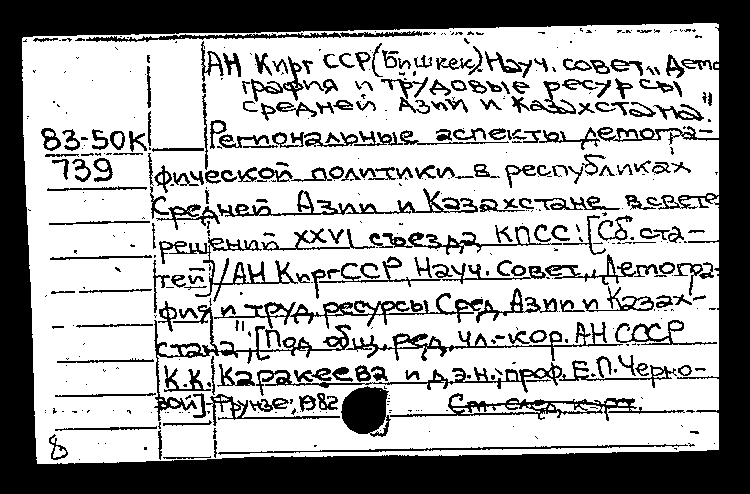 АН Кирг ССР (Бишкек). Науч. совет „Демо
графия и трудовые ресурсы
средней Азии и Казахстана"
83-50К Региональные аспекты демогра-
739 фической политики в республиках
Средней Азии и Казахстане в свете
решений XXVI съезда КПСС: [Сб. ста-
тей] / АН КиргССР, Науч. Совет „Демогра-
фия и труд. ресурсы Сред. Азии и Казах-
стана"; [Под общ. ред. чл.-кор. АН СССР
К.К. Каракеева и д.э.н., проф. Е.П. Черно-
вой] Фрунзе, 1982 См. след. карт.
8